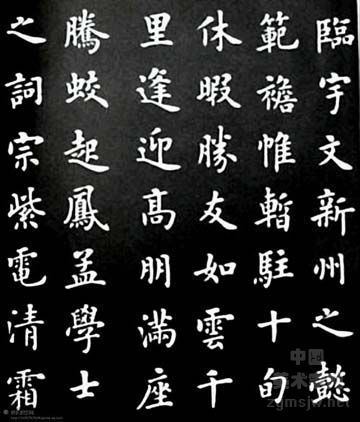 臨宇文新州之懿
範襜惟暫駐十旬
休暇勝友如雲千
里逢迎髙朋滿座
騰蛟起鳳孟學士
之詞宗紫電清霜
中国
美术
zgmsjw.net